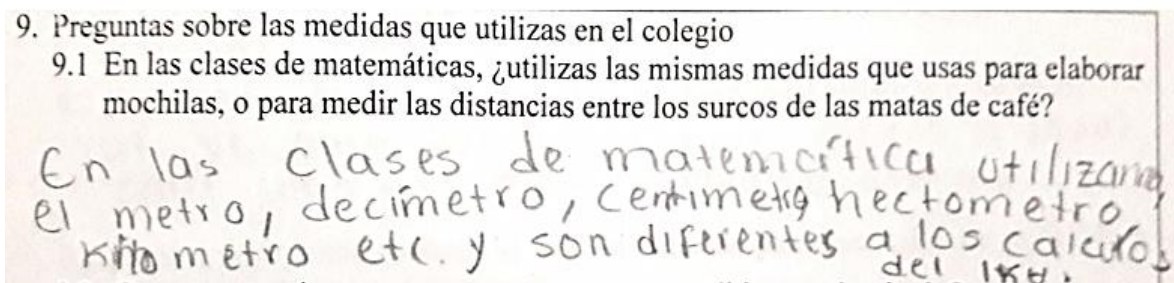 9. Preguntas sobre las medidas que utilizas en el colegio
9.1 En las clases de matemáticas, ¿utilizas las mismas medidas que usas para elaborar
mochilas, o para medir las distancias entre los surcos de las matas de café?
En las clases de matemática utilizamo
el metro, decímetro, centimetro hectometro
Kilometro etc. y son diferentes a los calculos
del